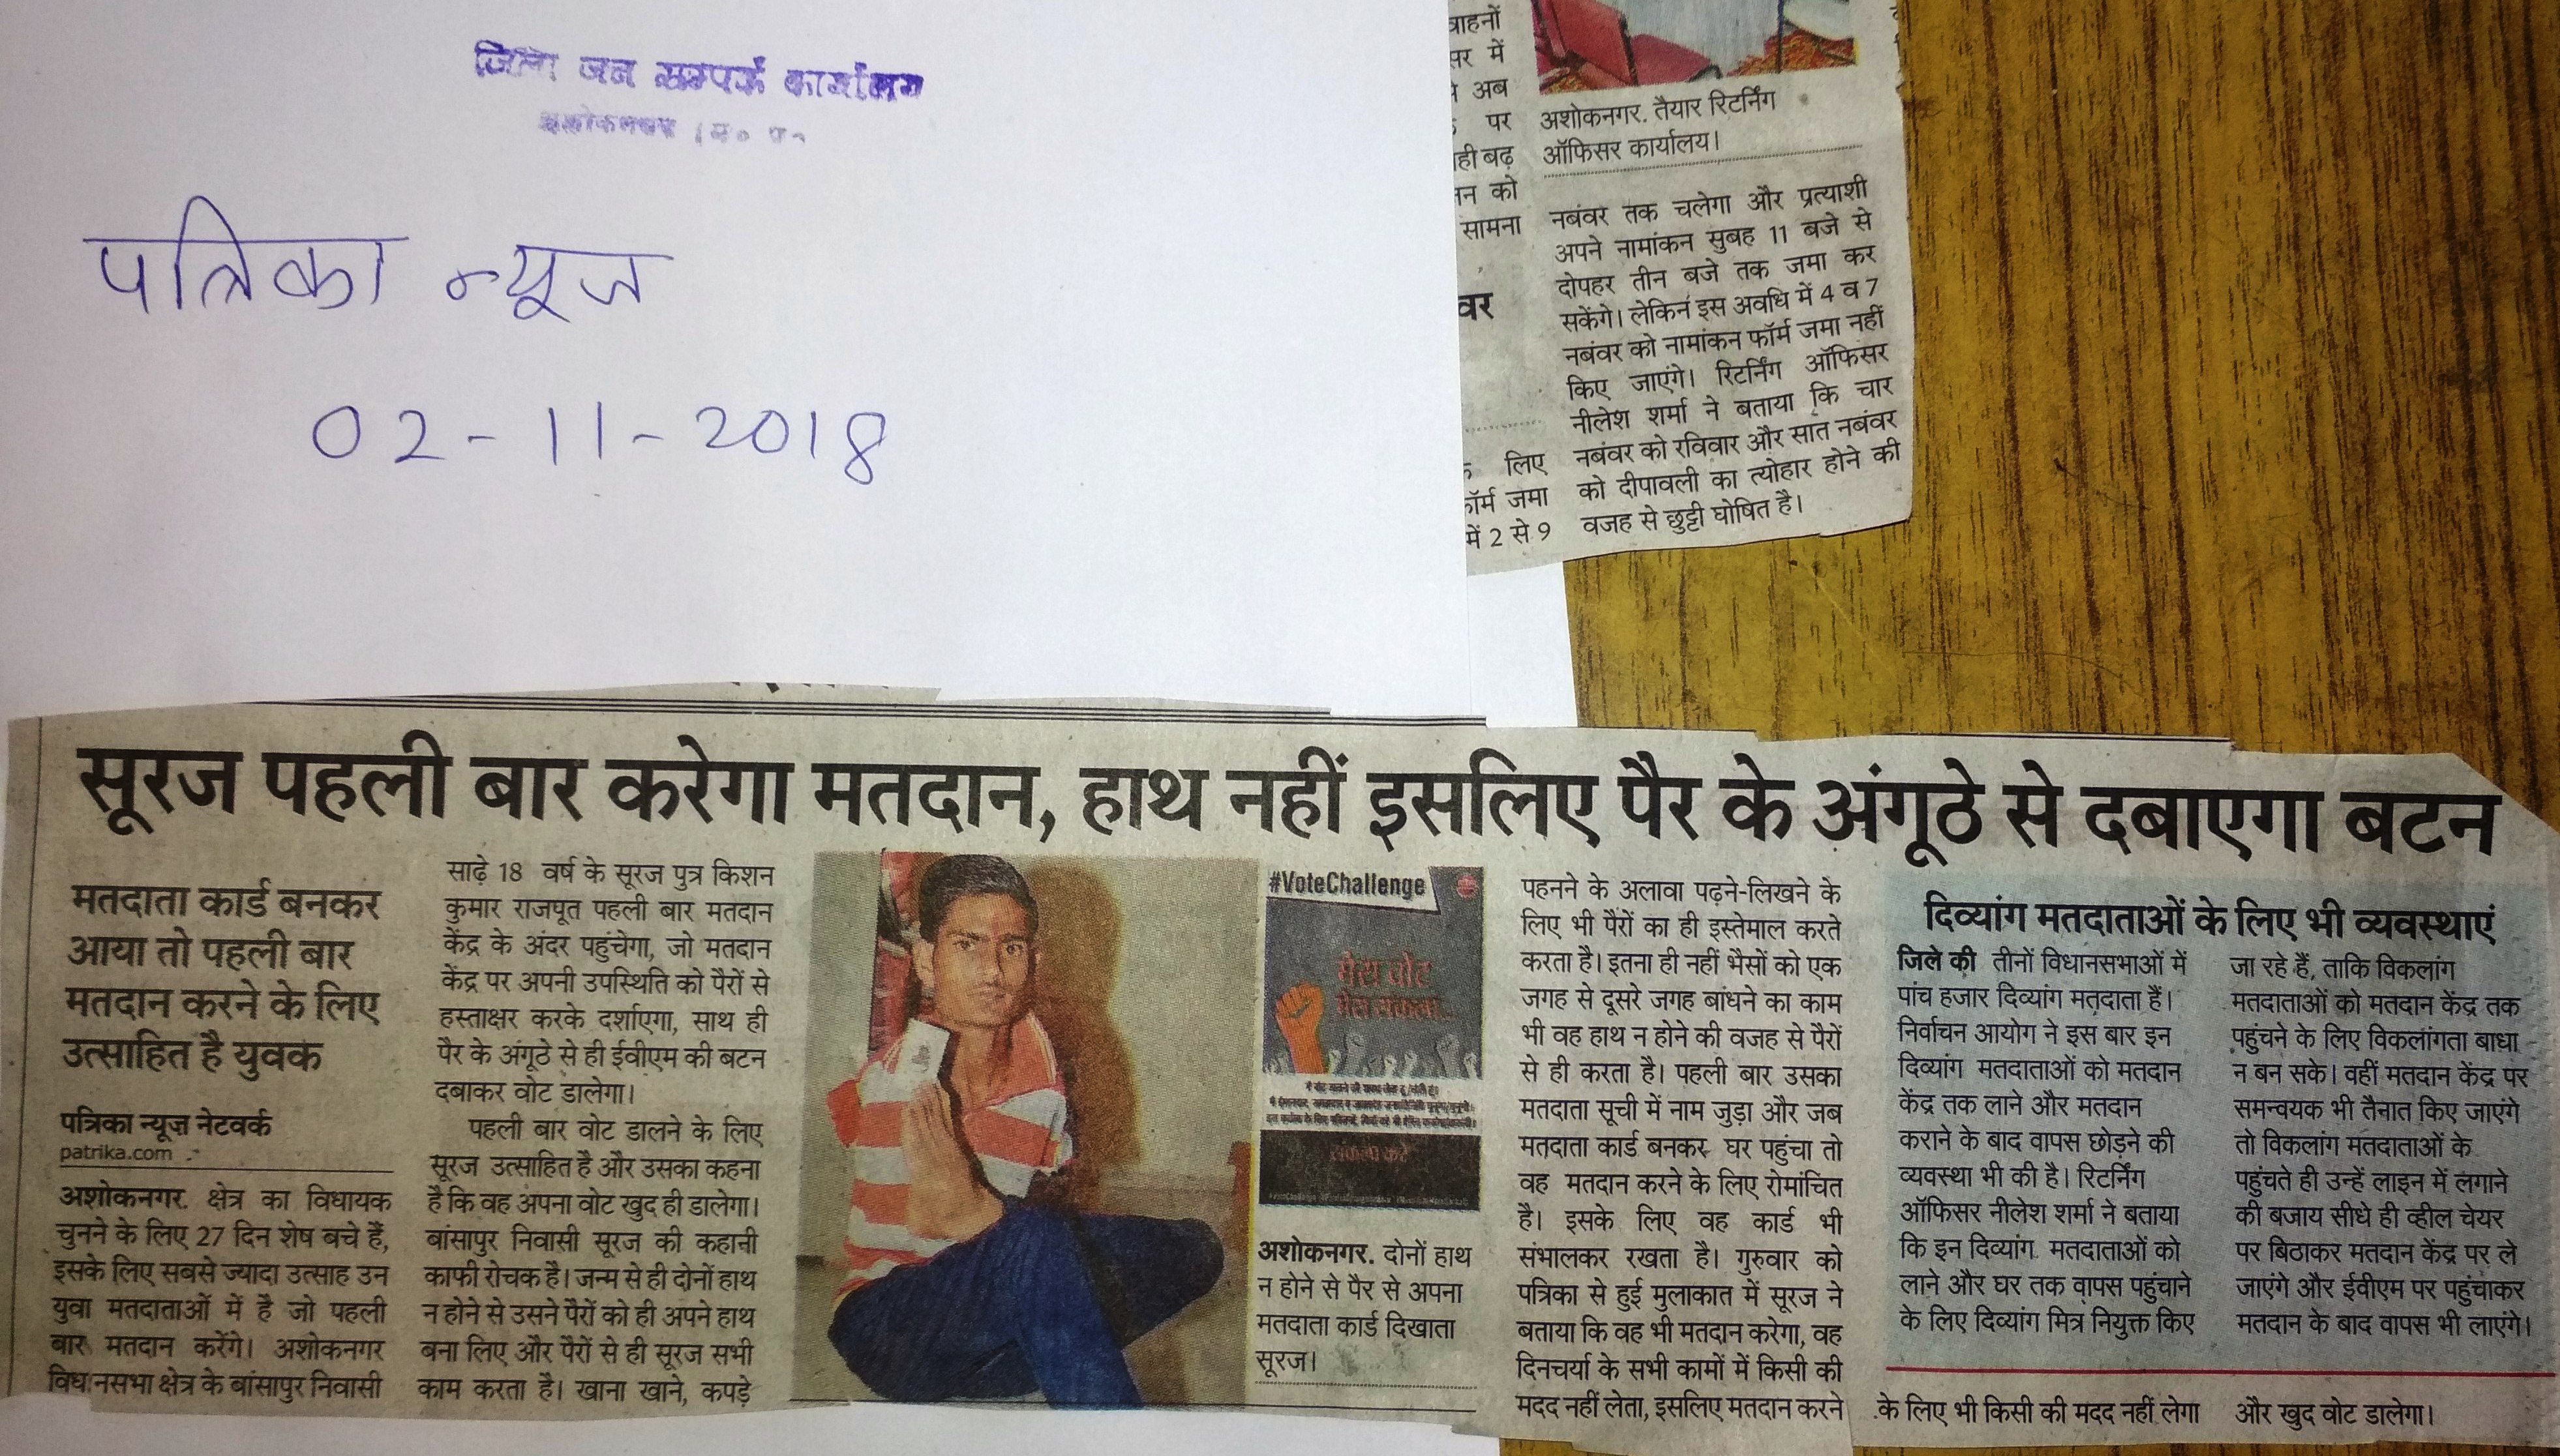 जिला जन सम्पर्क कार्यालय
पत्रिका न्यूज
02-11-2018
वाहनों
सर में
अब
पर
ही बढ़
को
सामना
वर
लिए
जमा
में 2 से 9
अशोकनगर. तैयार रिटर्निंग
ऑफिसर कार्यालय।
नबंवर तक चलेगा और प्रत्याशी
अपने नामांकन सुबह 11 बजे से
दोपहर तीन बजे तक जमा कर
सकेंगे। लेकिन इस अवधि में 4 व 7
नबंवर को नामांकन फॉर्म जमा नहीं
किए जाएंगे। रिटर्निंग ऑफिसर
नीलेश शर्मा ने बताया कि चार
नबंवर को रविवार और सात नबंवर
को दीपावली का त्योहार होने की
वजह से छुट्टी घोषित है।
सूरज पहली बार करेगा मतदान, हाथ नहीं इसलिए पैर के अंगूठे से दबाएगा बटन
मतदाता कार्ड बनकर
आया तो पहली बार
मतदान करने के लिए
उत्साहित है युवक
पत्रिका न्यूज नेटवर्क
patrika.com
अशोकनगर. क्षेत्र का विधायक
चुनने के लिए 27 दिन शेष बचे हैं,
इसके लिए सबसे ज्यादा उत्साह उन
युवा मतदाताओं में है जो पहली
बार मतदान करेंगे। अशोकनगर
विधानसभा क्षेत्र के बांसापुर निवासी
साढ़े 18 वर्ष के सूरज पुत्र किशन
कुमार राजपूत पहली बार मतदान
केंद्र के अंदर पहुंचेगा, जो मतदान
केंद्र पर अपनी उपस्थिति को पैरों से
हस्ताक्षर करके दर्शाएगा, साथ ही
पैर के अंगूठे से ही ईवीएम की बटन
दबाकर वोट डालेगा।
पहली बार वोट डालने के लिए
सूरज उत्साहित है और उसका कहना
है कि वह अपना वोट खुद ही डालेगा।
बांसापुर निवासी सूरज की कहानी
काफी रोचक है। जन्म से ही दोनों हाथ
न होने से उसने पैरों को ही अपने हाथ
बना लिए और पैरों से ही सूरज सभी
काम करता है। खाना खाने, कपड़े
#VoteChallenge
मेरा वोट
मेरा
संकल्प करें
अशोकनगर. दोनों हाथ
न होने से पैर से अपना
मतदाता कार्ड दिखाता
सूरज।
पहनने के अलावा पढ़ने-लिखने के
लिए भी पैरों का ही इस्तेमाल करते
करता है। इतना ही नहीं भैसों को एक
जगह से दूसरे जगह बांधने का काम
भी वह हाथ न होने की वजह से पैरों
से ही करता है। पहली बार उसका
मतदाता सूची में नाम जुड़ा और जब
मतदाता कार्ड बनकर घर पहुंचा तो
वह मतदान करने के लिए रोमांचित
है। इसके लिए वह कार्ड भी
संभालकर रखता है। गुरुवार को
पत्रिका से हुई मुलाकात में सूरज ने
बताया कि वह भी मतदान करेगा, वह
दिनचर्या के सभी कामों में किसी की
मदद नहीं लेता, इसलिए मतदान करने
दिव्यांग मतदाताओं के लिए भी व्यवस्थाएं
जिले की तीनों विधानसभाओं में
पांच हजार दिव्यांग मतदाता हैं।
निर्वाचन आयोग ने इस बार इन
दिव्यांग मतदाताओं को मतदान
केंद्र तक लाने और मतदान
कराने के बाद वापस छोड़ने की
व्यवस्था भी की है। रिटर्निंग
ऑफिसर नीलेश शर्मा ने बताया
कि इन दिव्यांग मतदाताओं को
लाने और घर तक वापस पहुंचाने
के लिए दिव्यांग मित्र नियुक्त किए
जा रहे हैं, ताकि विकलांग
मतदाताओं को मतदान केंद्र तक
पहुंचने के लिए विकलांगता बाधा
न बन सके। वहीं मतदान केंद्र पर
समन्वयक भी तैनात किए जाएंगे
तो विकलांग मतदाताओं के
पहुंचते ही उन्हें लाइन में लगाने
की बजाय सीधे ही व्हील चेयर
पर बिठाकर मतदान केंद्र पर ले
जाएंगे और ईवीएम पर पहुंचाकर
मतदान के बाद वापस भी लाएंगे।
के लिए भी किसी की मदद नहीं लेगा
और खुद वोट डालेगा।